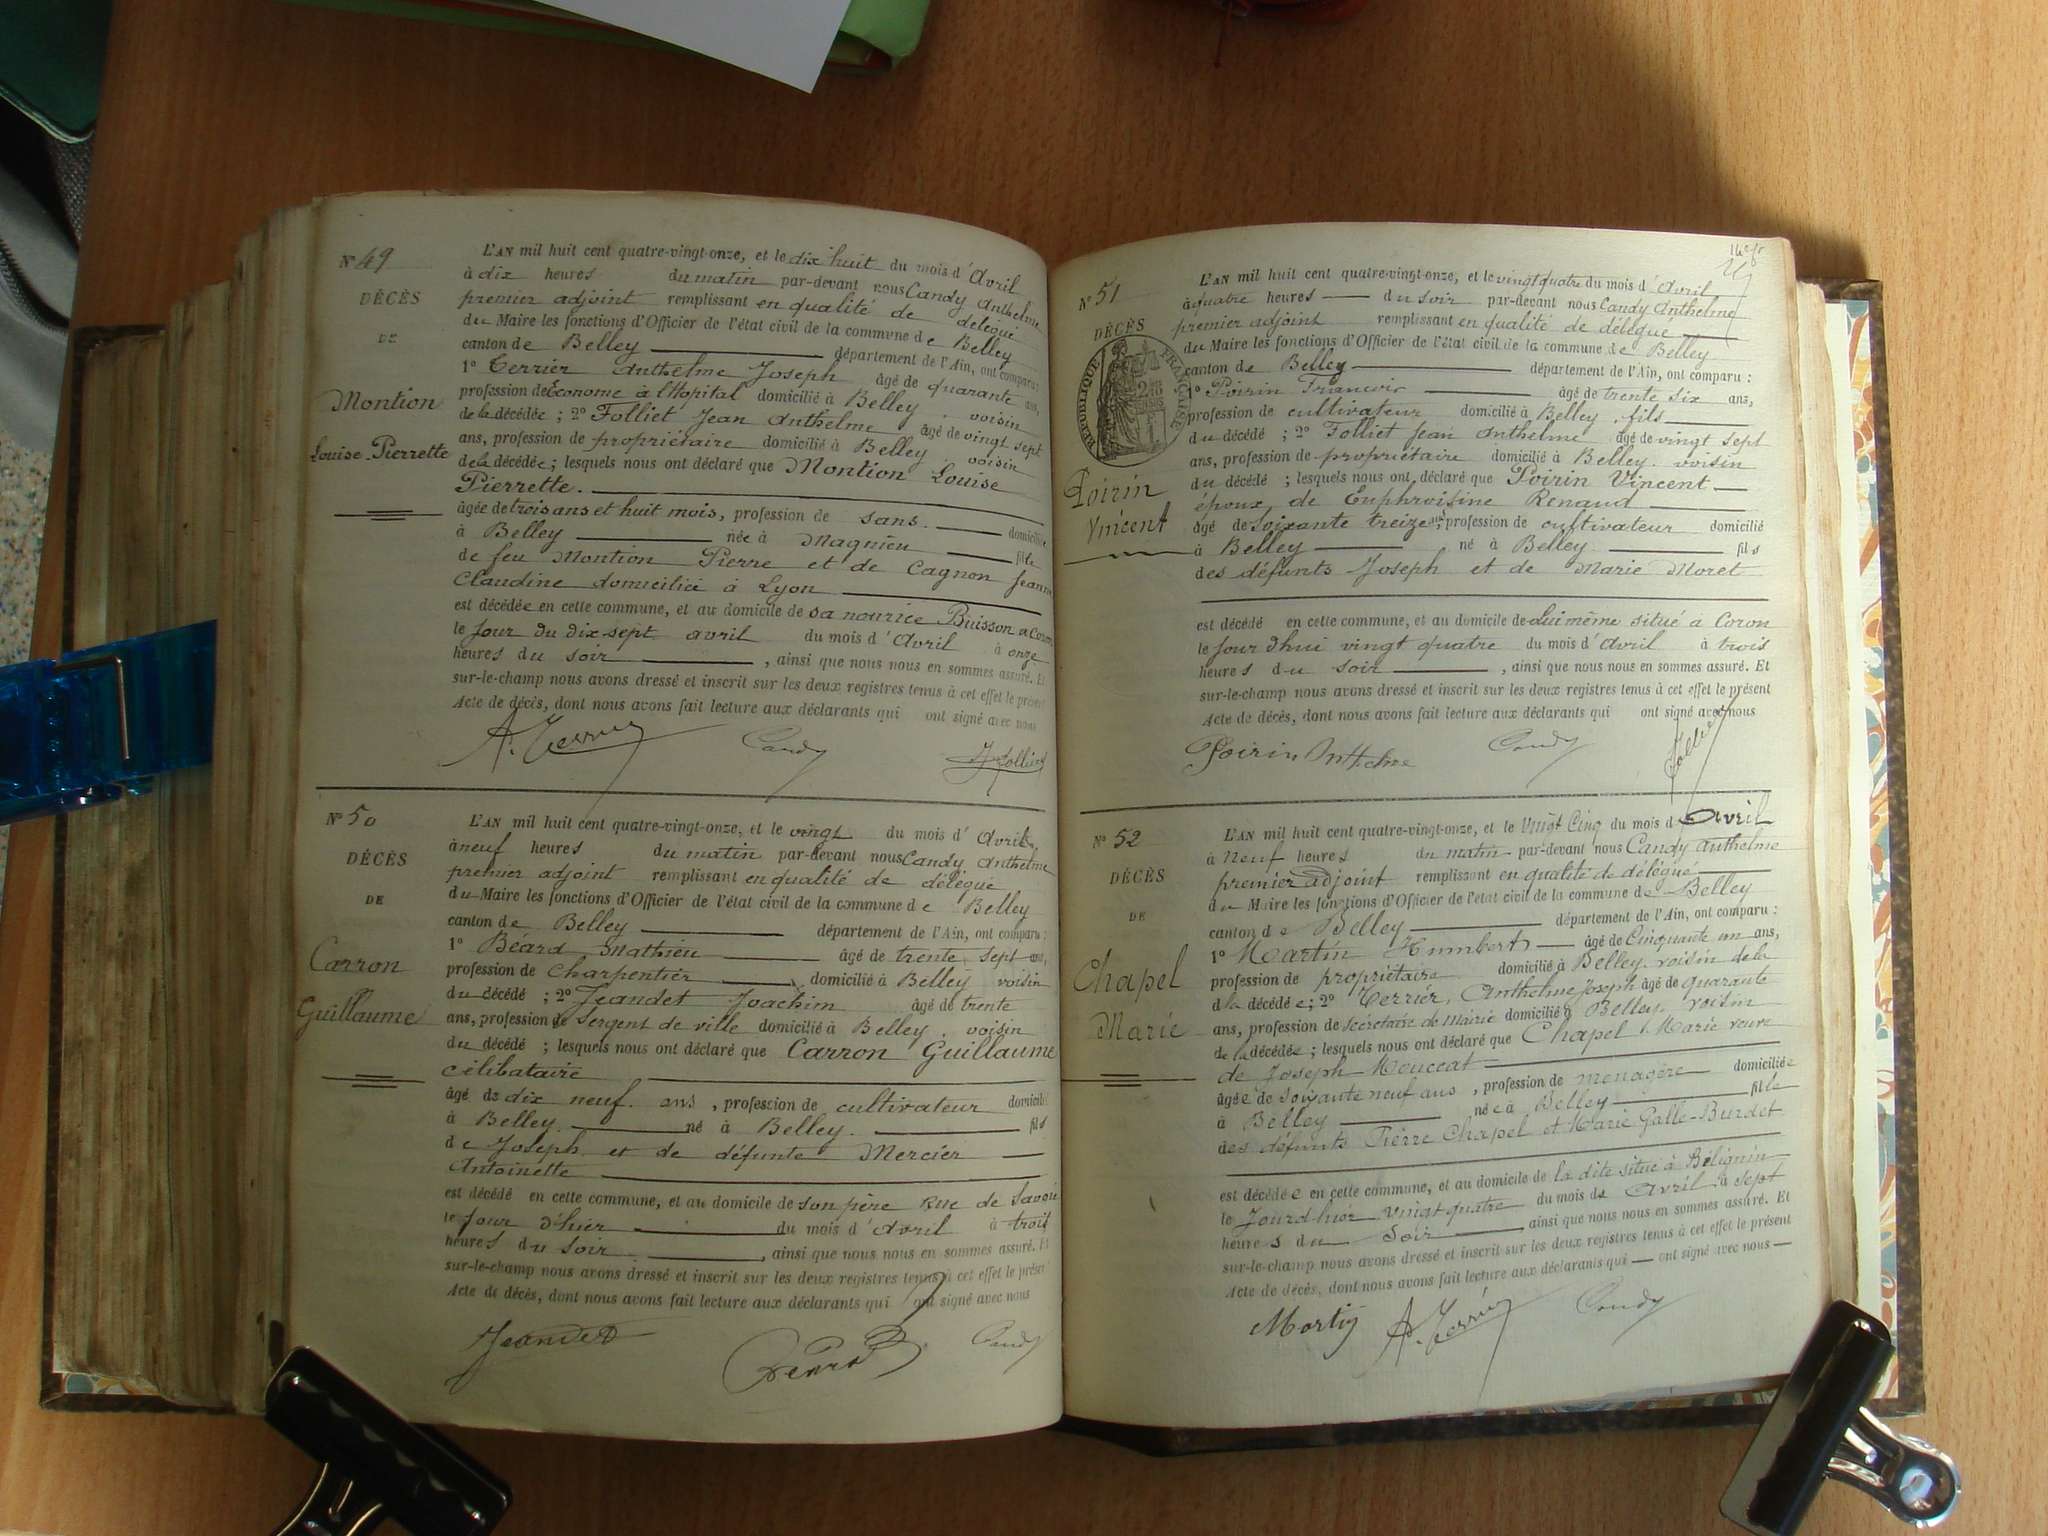 N° 49
DÉCÈS
DE
Montion
Louise-Pierrette
L'AN mil huit cent quatre-vingt-onze, et le dix huit du mois d'Avril
à dix heures du matin par-devant nous Candy Anthelme
premier adjoint remplissant en qualité de délégué
du Maire les fonctions d'Officier de l'état civil de la commune de Belley
canton de Belley département de l'Ain, ont comparu :
1° Terrier Anthelme Joseph âgé de quarante ans,
profession de Econome à l'Hopital domicilié à Belley, voisin
de la décédée ; 2° Folliet Jean Anthelme âgé de vingt sept
ans, profession de propriétaire domicilié à Belley, voisin
de la décédée ; lesquels nous ont déclaré que Montion Louise
Pierrette.
âgée de trois ans et huit mois, profession de sans. domiciliée
à Belley née à Magnieu fille
de feu Montion Pierre et de Cagnon Jeanne
Claudine domiciliée à Lyon
est décédée en cette commune, et au domicile de sa nourice Buisson à Coron
le Jour du dix-sept avril du mois d'Avril à onze
heures du soir, ainsi que nous nous en sommes assuré. Et
sur-le-champ nous avons dressé et inscrit sur les deux registres tenus à cet effet le présent
Acte de décès, dont nous avons fait lecture aux déclarants qui ont signé avec nous
A. Terrier Candy J. Folliet
N° 50
DÉCÈS
DE
Carron
Guillaume
L'AN mil huit cent quatre-vingt-onze, et le vingt du mois d'Avril
à neuf heures du matin par-devant nous Candy Anthelme
premier adjoint remplissant en qualité de délégué
du Maire les fonctions d'Officier de l'état civil de la commune de Belley
canton de Belley département de l'Ain, ont comparu :
1° Béard Mathieu âgé de trente sept ans,
profession de Charpentier domicilié à Belley voisin
du décédé ; 2° Jeandet Joachim âgé de trente
ans, profession de Sergent de ville domicilié à Belley, voisin
du décédé ; lesquels nous ont déclaré que Carron Guillaume
célibataire
âgé de dix neuf ans, profession de cultivateur domicilié
à Belley. né à Belley. fils
de Joseph et de défunte Mercier
Antoinette
est décédé en cette commune, et au domicile de son père Rue de Savoie
le Jour d'hier du mois d'Avril à trois
heures du soir, ainsi que nous nous en sommes assuré. Et
sur-le-champ nous avons dressé et inscrit sur les deux registres tenus à cet effet le présent
Acte de décès, dont nous avons fait lecture aux déclarants qui ont signé avec nous
Jeandet Béard Candy
N° 51
DÉCÈS
RÉPUBLIQUE FRANÇAISE
Poirin
Vincent
L'AN mil huit cent quatre-vingt-onze, et le vingt quatre du mois d'Avril
à quatre heures du soir par-devant nous Candy Anthelme
premier adjoint remplissant en qualité de délégué
du Maire les fonctions d'Officier de l'état civil de la commune de Belley
canton de Belley département de l'Ain, ont comparu :
1° Poirin François âgé de trente six ans,
profession de cultivateur domicilié à Belley, fils
du décédé ; 2° Folliet Jean Anthelme âgé de vingt sept
ans, profession de propriétaire domicilié à Belley. voisin
du décédé ; lesquels nous ont déclaré que Poirin Vincent
époux de Euphroisine Renaud
âgé de soixante treize ans, profession de cultivateur domicilié
à Belley né à Belley. fils
des défunts Joseph et de Marie Moret
est décédé en cette commune, et au domicile de lui même situé à Coron
le Jour d'hui vingt quatre du mois d'Avril à trois
heures du soir, ainsi que nous nous en sommes assuré. Et
sur-le-champ nous avons dressé et inscrit sur les deux registres tenus à cet effet le présent
Acte de décès, dont nous avons fait lecture aux déclarants qui ont signé avec nous
Poirin Anthelme Candy Folliet
N° 52
DÉCÈS
DE
Chapel
Marie
L'AN mil huit cent quatre-vingt-onze, et le Vingt Cinq du mois d'Avril
à Neuf heures du matin par-devant nous Candy Anthelme
premier adjoint remplissant en qualité de délégué
du Maire les fonctions d'Officier de l'état civil de la commune de Belley
canton de Belley département de l'Ain, ont comparu :
1° Martin Humbert âgé de Cinquante un ans,
profession de propriétaire domicilié à Belley. voisin de la
de la décédée ; 2° Terrier, Anthelme Joseph âgé de quarante
ans, profession de Secrétaire de Mairie domicilié à Belley. voisin
de la décédée ; lesquels nous ont déclaré que Chapel Marie veuve
de Joseph Mouccat
âgée de Soixante neuf ans, profession de ménagère domiciliée
à Belley née à Belley fille
des défunts Pierre Chapel et Marie Galle-Burdet
est décédée en cette commune, et au domicile de la dite situé à Bélignin
le Jour d'hier vingt quatre du mois de Avril à Sept
heures du Soir, ainsi que nous nous en sommes assuré. Et
sur-le-champ nous avons dressé et inscrit sur les deux registres tenus à cet effet le présent
Acte de décès, dont nous avons fait lecture aux déclarants qui ont signé avec nous
Martin A. Terrier Candy